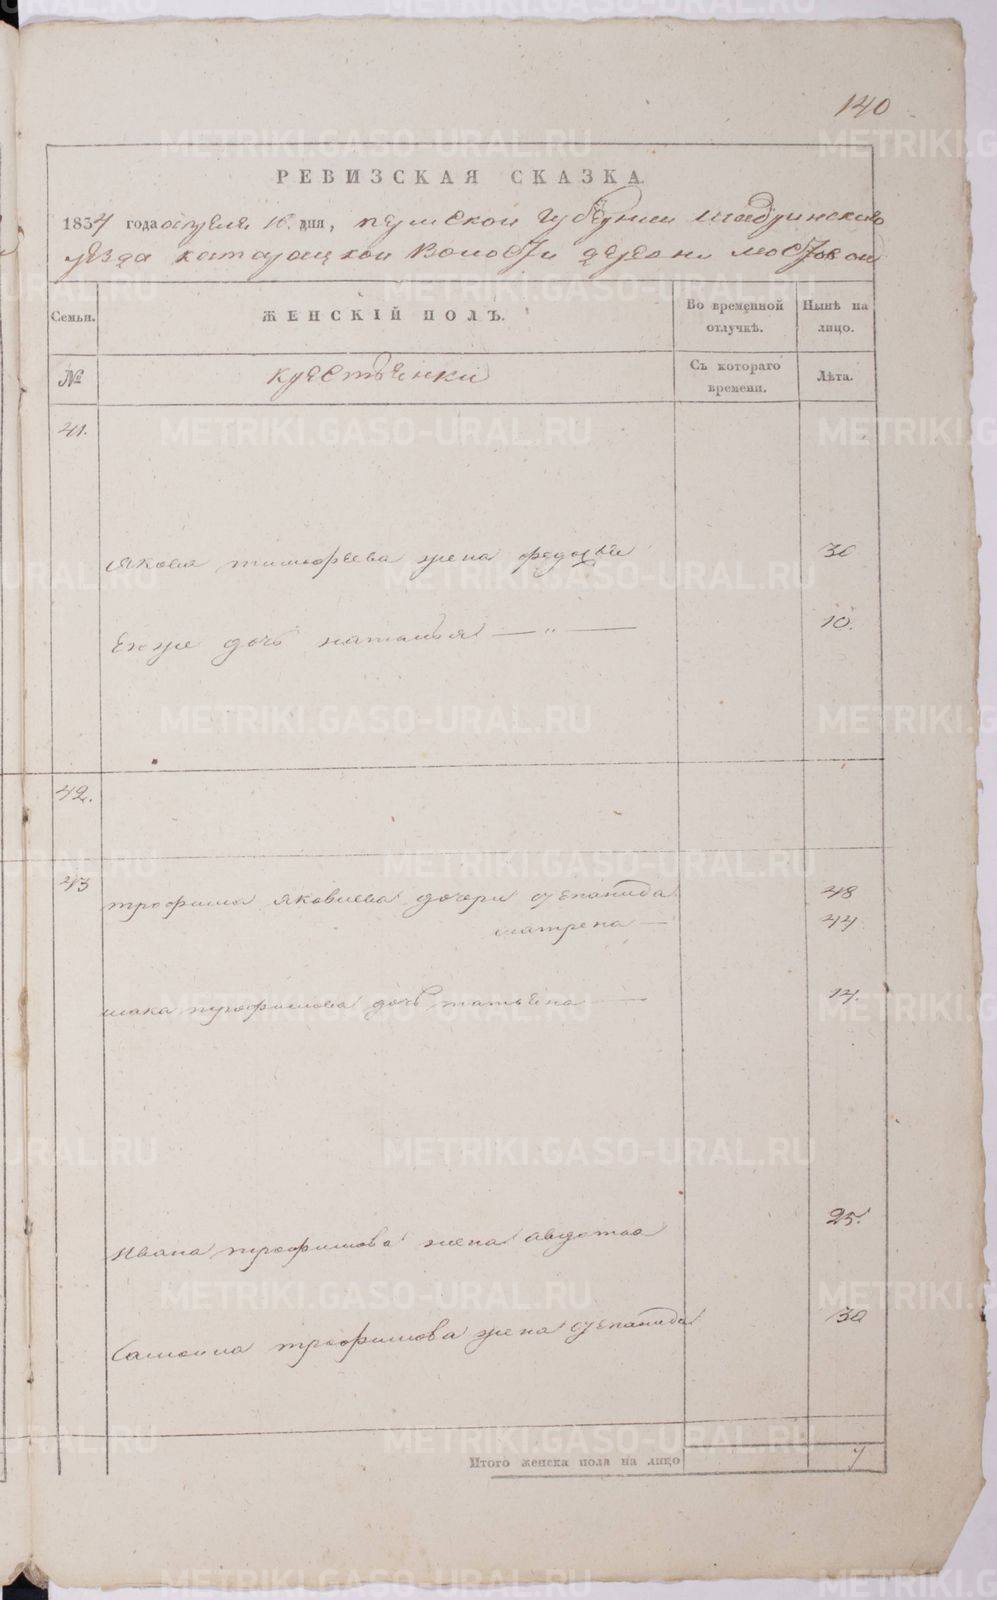 140
РЕВИЗСКАЯ СКАЗКА
1834 года апреля 16. дня, пермской губернии шадринскаго
уезда катарацкой волости деревни мостовой
Семьи.
ЖЕНСКІЙ ПОЛЪ.
Во временной отлучкѣ.
Нынѣ на лицо.
№
крестьянки
Съ котораго времени.
Лѣта.
41.
якова тимофеева жена федосья 30
Ево же дочь наталья — „ — 10.
42.
43
трофима яковлева дочери степанида 48
матрена — 44
трофимова дочь татьяна — 14.
Ивана трофимова жена авдотья 25.
Самоила трофимова жена степанида 30
Итого женска пола на лицо 7
METRIKI.GASO-URAL.RU